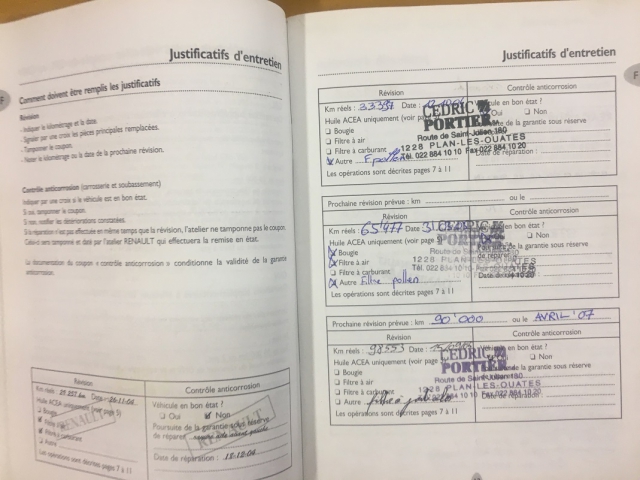 Justificatifs d'entretien
Comment doivent être remplis les justificatifs
Révision
- Indiquer le kilométrage et la date.
- Signaler par une croix les pièces principales remplacées.
- Tamponner le coupon.
- Noter le kilométrage ou la date de la prochaine révision.
Contrôle anticorrosion (carrosserie et soubassement)
Indiquer par une croix si le véhicule est en bon état.
Si oui, tamponner le coupon.
Si non, notifier les détériorations constatées.
Si la réparation n'est pas effectuée en même temps que la révision, l'atelier ne tamponne pas le coupon.
Celui-ci sera tamponné et daté par l'atelier RENAULT qui effectuera la remise en état.
La documentation du coupon « contrôle anticorrosion » conditionne la validité de la garantie
anticorrosion.
Révision
Km réels : Date : 26-11-04
Huile ACEA uniquement (voir page 5)
Bougie
Filtre à air
Filtre à carburant
Autre
Les opérations sont décrites pages 7 à 11
Contrôle anticorrosion
Véhicule en bon état ?
Oui Non
Poursuite de la garantie sous réserve
de réparer
Date de réparation : 12.12.04
RENAULT
RENAULT
F
Justificatifs d'entretien
F
Révision
Km réels : Date :
Huile ACEA uniquement (voir page
Bougie
Filtre à air
Filtre à carburant
Autre
Les opérations sont décrites pages 7 à 11
Contrôle anticorrosion
Véhicule en bon état ?
Oui Non
de la garantie sous réserve
Date de réparation :
CEDRIC
PORTIER
Route de Saint-Julien 180
1228 PLAN-LES-OUATES
Tél. 022 884 10 10 Fax 022 884 10 20
Prochaine révision prévue : km ou le
Révision
Km réels : 65'477 Date
Huile ACEA uniquement (voir page
Bougie
Filtre à air
Filtre à carburant
Autre Filtre pollen
Les opérations sont décrites pages 7 à 11
Contrôle anticorrosion
de la garantie sous réserve
Date de
CEDRIC
PORTIER
Route de Saint-Julien
1228 PLAN-LES-OUATES
Tél. 022 884 10 10
Prochaine révision prévue : km 90'000 ou le AVRIL '07
Révision
Km réels : 98553 Date :
Huile ACEA uniquement (voir page
Bougie
Filtre à air
Filtre à carburant
Autre
Les opérations sont décrites pages 7 à 11
Contrôle anticorrosion
Véhicule en bon état ?
Non
de la garantie sous réserve
Date de réparation :
CEDRIC
PORTIER
Route de Saint-Julien 180
1228 PLAN-LES-OUATES
Tél. 022 884 10 10 Fax 022 884 10 20